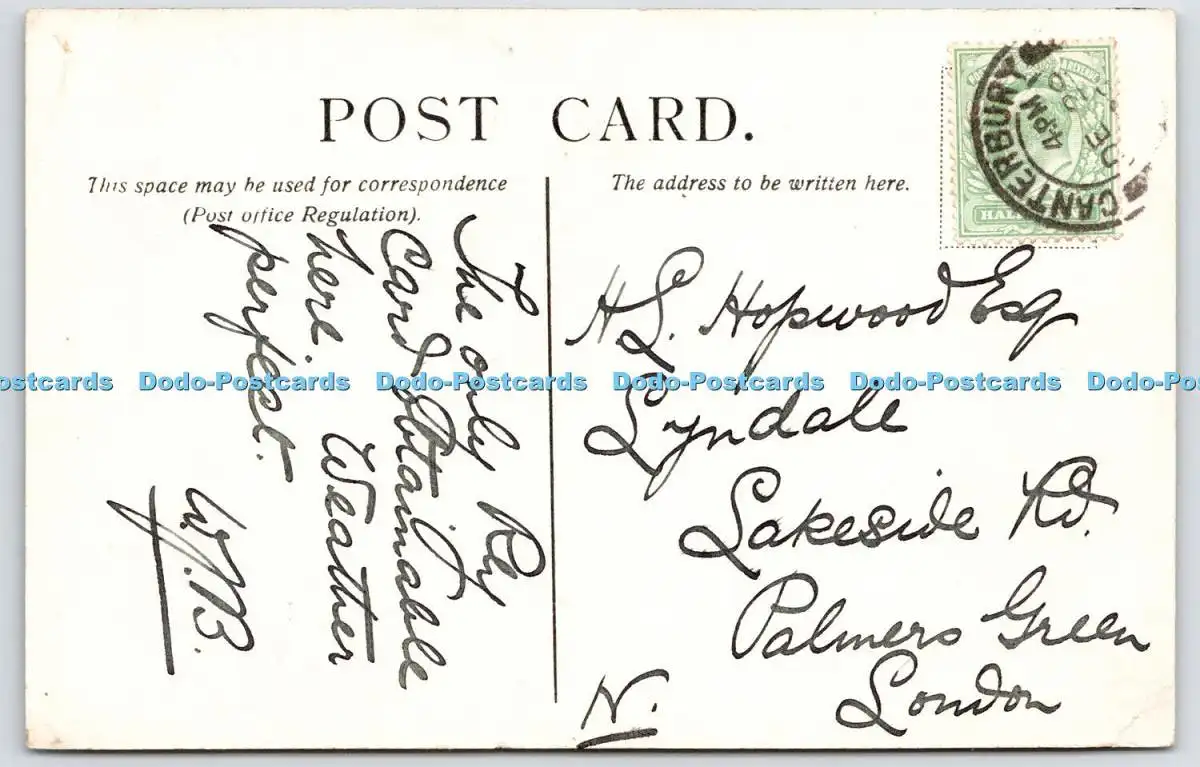 POST CARD.
This space may be used for correspondence
(Post office Regulation).
The address to be written here.
CANTERBURY
4 PM
HALF
The only Rly
Card obtainable
here. Weather
perfect.
W.J.B.
H.L. Hopwood Esq
Lyndale
Lakeside Rd.
Palmers Green
London
N.
Dodo-Postcards Dodo-Postcards Dodo-Postcards Dodo-Postcards Dodo-Postcards